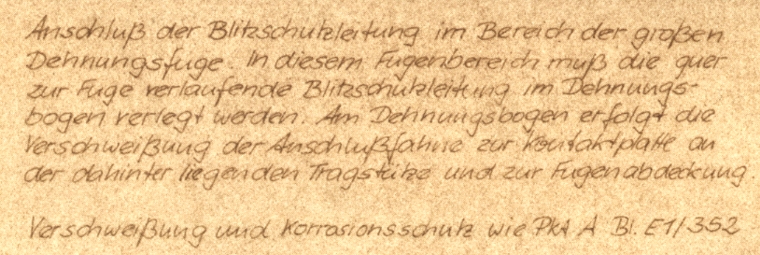 Anschluß der Blitzschutzleitung im Bereich der großen
Dehnungsfuge. In diesem Fugenbereich muß die quer
zur Fuge verlaufende Blitzschutzleitung im Dehnungs-
bogen verlegt werden. Am Dehnungsbogen erfolgt die
Verschweißung der Anschlußfahne zur Kontaktplatte an
der dahinter liegenden Tragstütze und zur Fugenabdeckung.
Verschweißung und Korrosionsschutz wie PkA A Bl. E1/352